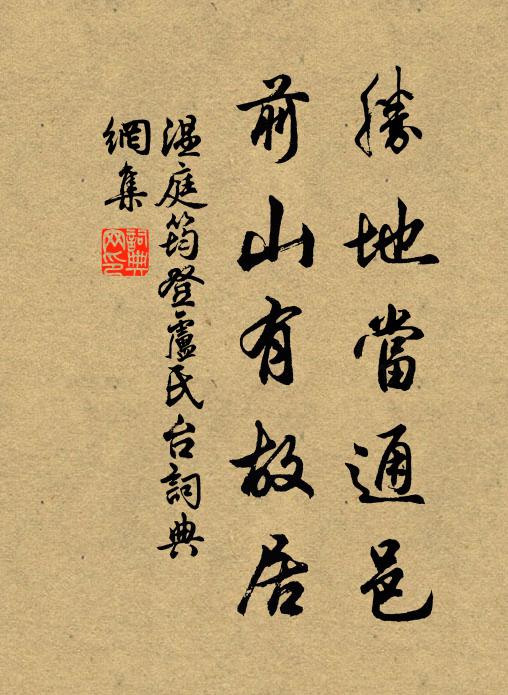 勝地當通邑
前山有故居
溫庭筠登盧氏台詞典
網集
詞典
网印